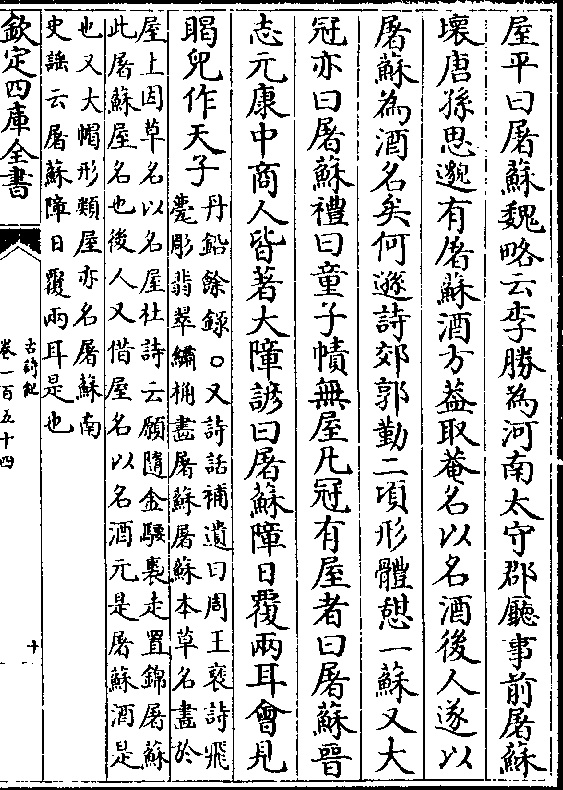 屋平曰屠蘇魏略云李勝為河南太守郡廳事前屠蘇
壞唐孫思邈有屠蘇酒方葢取菴名以名酒後人遂以
屠蘇為酒名矣何遜詩郊郭勤二頃形體憇一蘇又大
冠亦曰屠蘇禮曰童子幘無屋凡冠有屋者曰屠蘇晉
志元康中商人皆著大障諺曰屠蘇障日覆兩耳會見
瞎兒作天子
丹鉛餘録○又詩話補遺曰周王褒詩飛
甍彫翡翠繡桷畫屠蘇屠蘇本草名畫於
屋上因草名以名屋杜詩云願隨金騕褭走置錦屠蘇
此屠蘇屋名也後人又借屋名以名酒元是屠蘇酒是
也又大帽形類屋亦名屠蘇南
史謡云屠蘇障日覆兩耳是也
欽定四庫全書
古詩紀
卷一百五十四
十